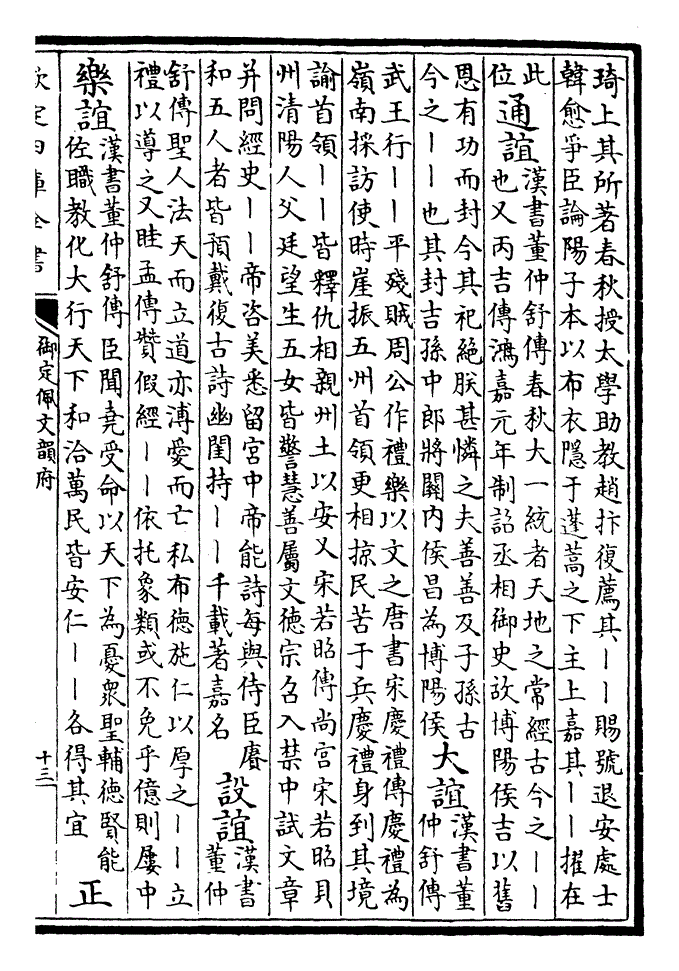 琦上其所著春秋授太學助教趙抃復薦其丨丨賜號退安處士
韓愈爭臣論陽子本以布衣隱于蓬蒿之下主上嘉其丨丨擢在
此
位
通誼
漢書董仲舒傳春秋大一統者天地之常經古今之丨丨
也又丙吉傳鴻嘉元年制詔丞相御史故博陽侯吉以舊
恩有功而封今其祀絕朕甚憐之夫善善及子孫古
今之丨丨也其封吉孫中郎將關內侯昌為博陽侯
大誼
漢書董
仲舒傳
武王行丨丨平殘賊周公作禮樂以文之唐書宋慶禮傳慶禮為
嶺南採訪使時崖振五州首領更相掠民苦于兵慶禮身到其境
諭首領丨丨皆釋仇相親州土以安又宋若昭傳尚宮宋若昭貝
州清陽人父廷望生五女皆警慧善屬文德宗召入禁中試文章
并問經史丨丨帝咨美悉留宮中帝能詩每與侍臣賡
和五人者皆預戴復古詩幽閨持丨丨千載著嘉名
設誼
漢書
董仲
舒傳聖人法天而立道亦溥愛而亡私布德施仁以厚之丨丨立
禮以導之又眭孟傳贊假經丨丨依托象類或不免乎億則屢中
樂誼
漢書董仲舒傳臣聞堯受命以天下為憂衆聖輔德賢能
佐職教化大行天下和洽萬民皆安仁丨丨各得其宜
正
欽定四庫全書
御定佩文韻府
十三